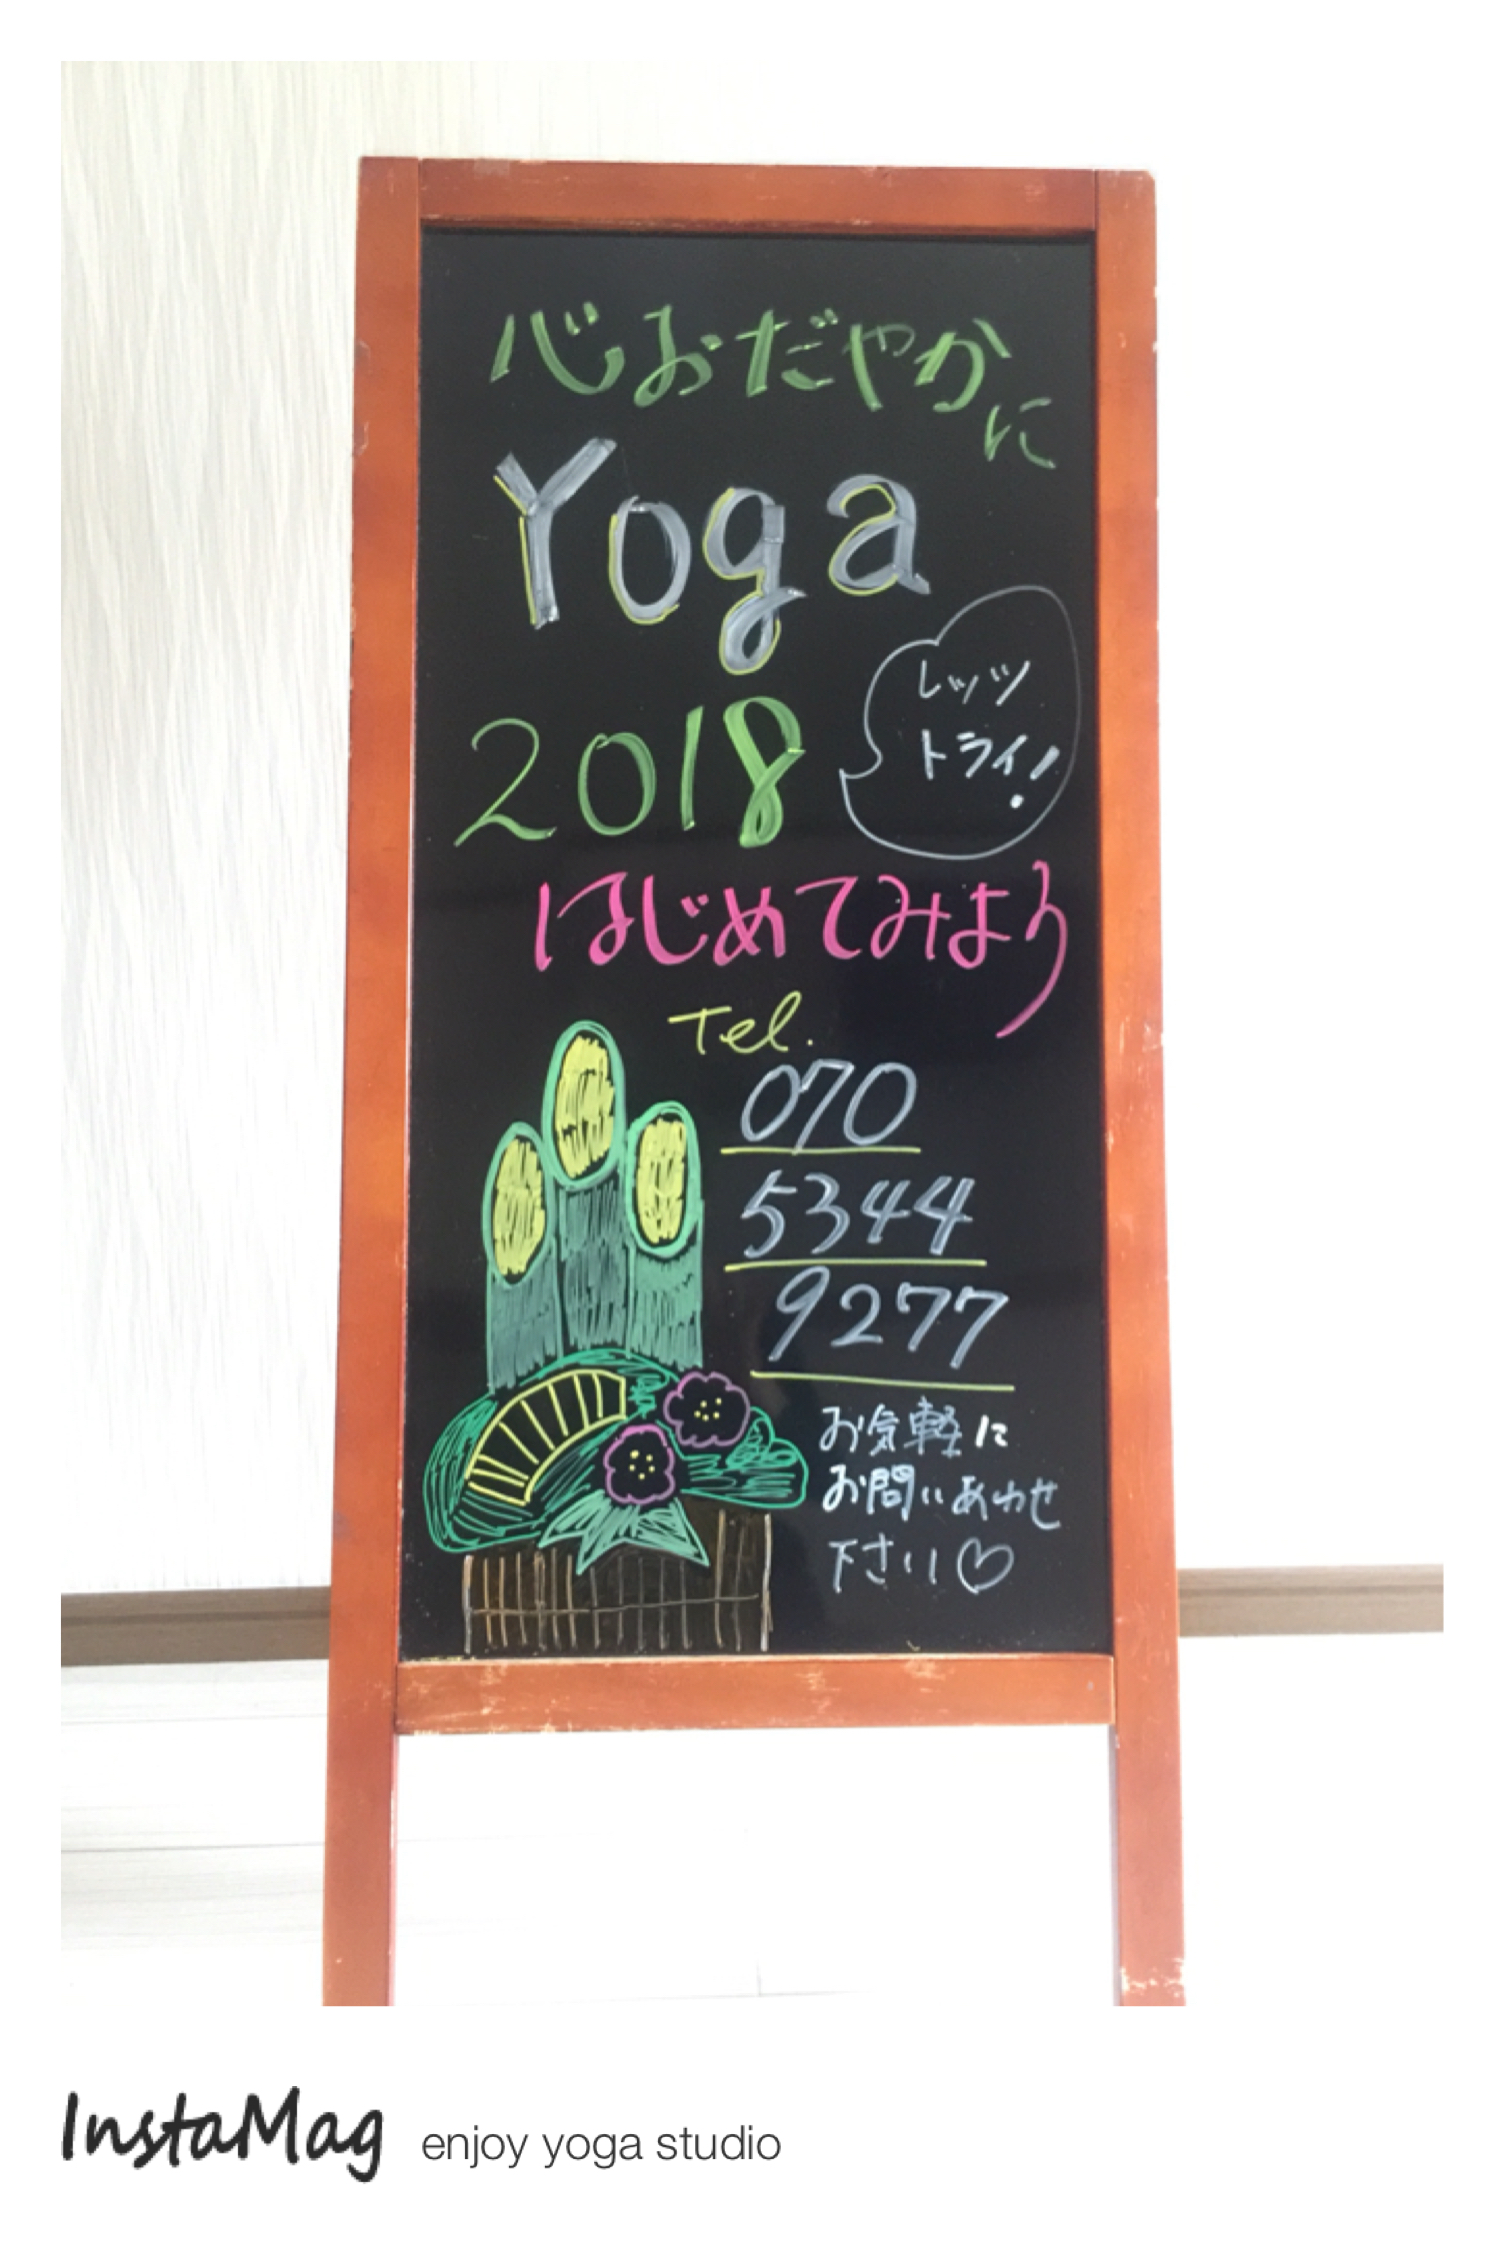 心おだやかに
Yoga
2018
レッツ
トライ!
はじめてみよう
Tel.
070
5344
9277
お気軽に
お問いあわせ
下さい♡
InstaMag enjoy yoga studio